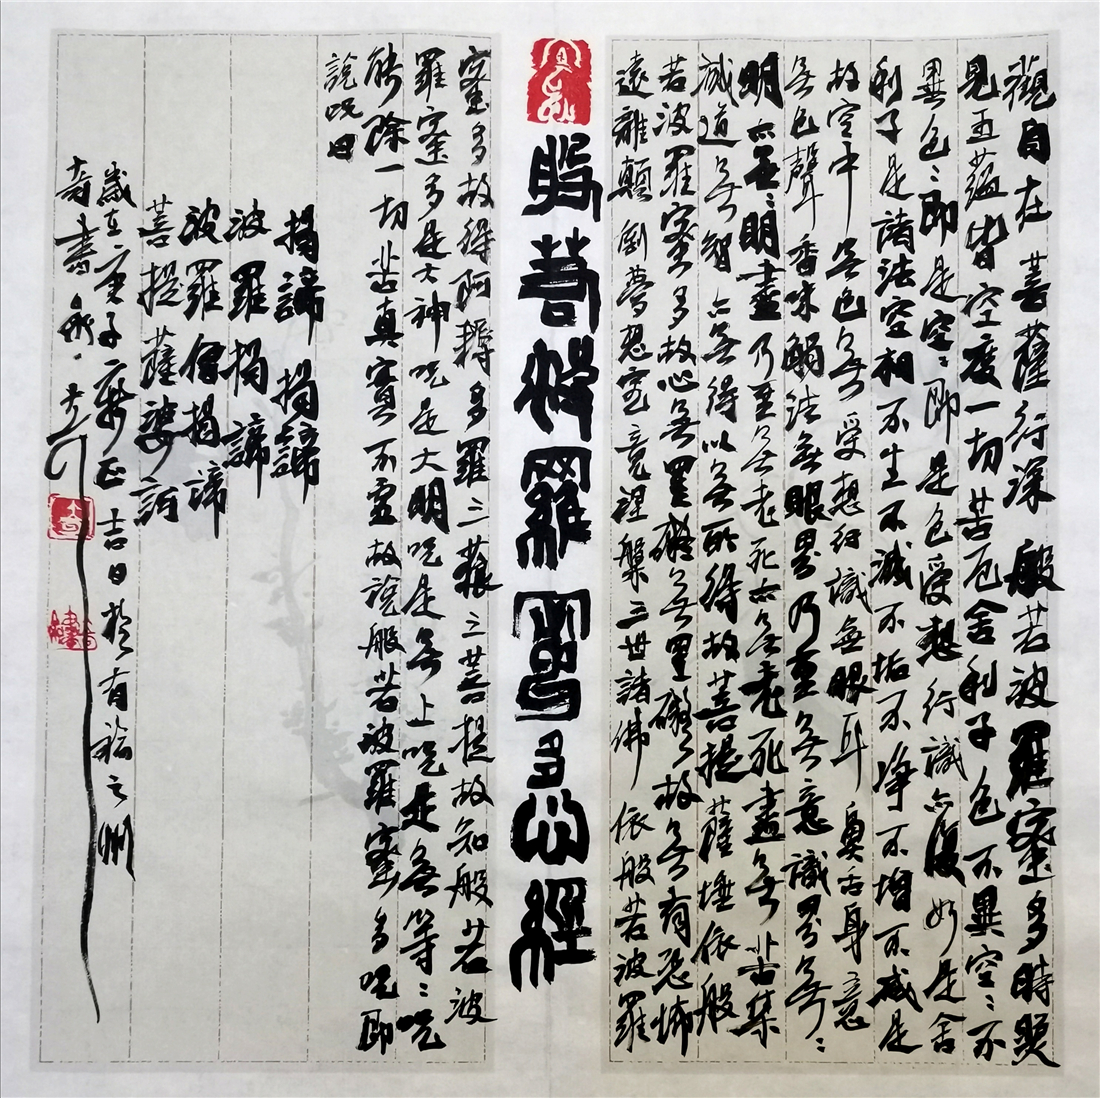 觀自在菩薩行深般若波羅蜜多時照
見五蘊皆空度一切苦厄舍利子色不異空〻不
異色〻即是空〻即是色受想行識亦復如是舍
利子是諸法空相不生不滅不垢不淨不增不減是
故空中無色無受想行識無眼耳鼻舌身意
無色聲香味觸法無眼界乃至無意識界無〻
明亦無〻明盡乃至無老死亦無老死盡無苦集
滅道無智亦無得以無所得故菩提薩埵依般
若波羅蜜多故心無罣礙無罣礙故無有恐怖
遠離顛倒夢想究竟涅槃三世諸佛依般若波羅
般若波羅蜜多心經
蜜多故得阿耨多羅三藐三菩提故知般若波
羅蜜多是大神咒是大明咒是無上咒是無等〻咒
能除一切苦真實不虛故說般若波羅蜜多咒即
說咒曰
揭諦揭諦
波羅揭諦
波羅僧揭諦
菩提薩婆訶
歲在庚子吉日於有之州
奇書